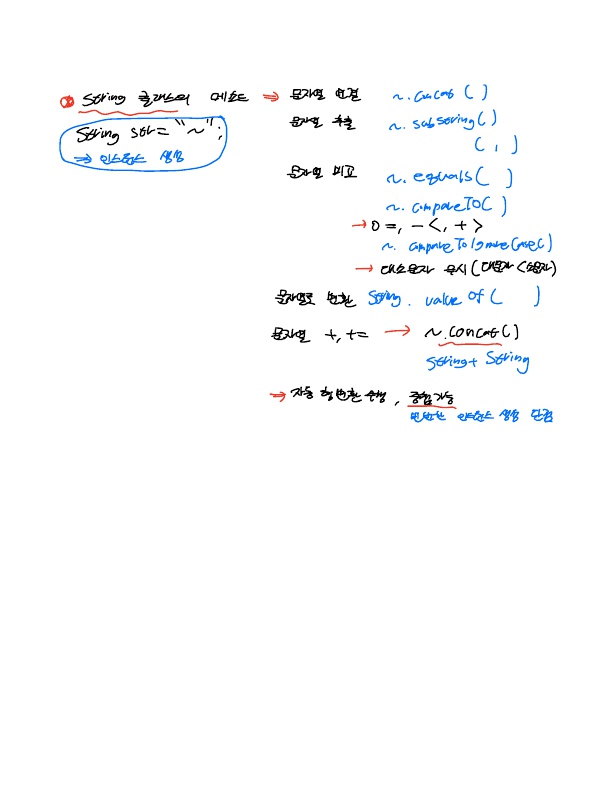 String 클래스의 메소드 ⇒ 문자열 연결 ~.concat ( )
String str = "~";
⇒ 인스턴스 생성
문자열 추출 ~.substring( )
( , )
문자열 비교 ~.equals( )
~.compareTO( )
→ 0 =, - <, + >
~.compareToIgnoreCase( )
→ 대소문자 무시 (대문자 < 소문자)
문자열로 변환 String.value of ( )
문자열 +, += → ~.concat( )
String + String
⇒ 자동 형변환 수행, 중첩가능
빈번한 인스턴스 생성 단점